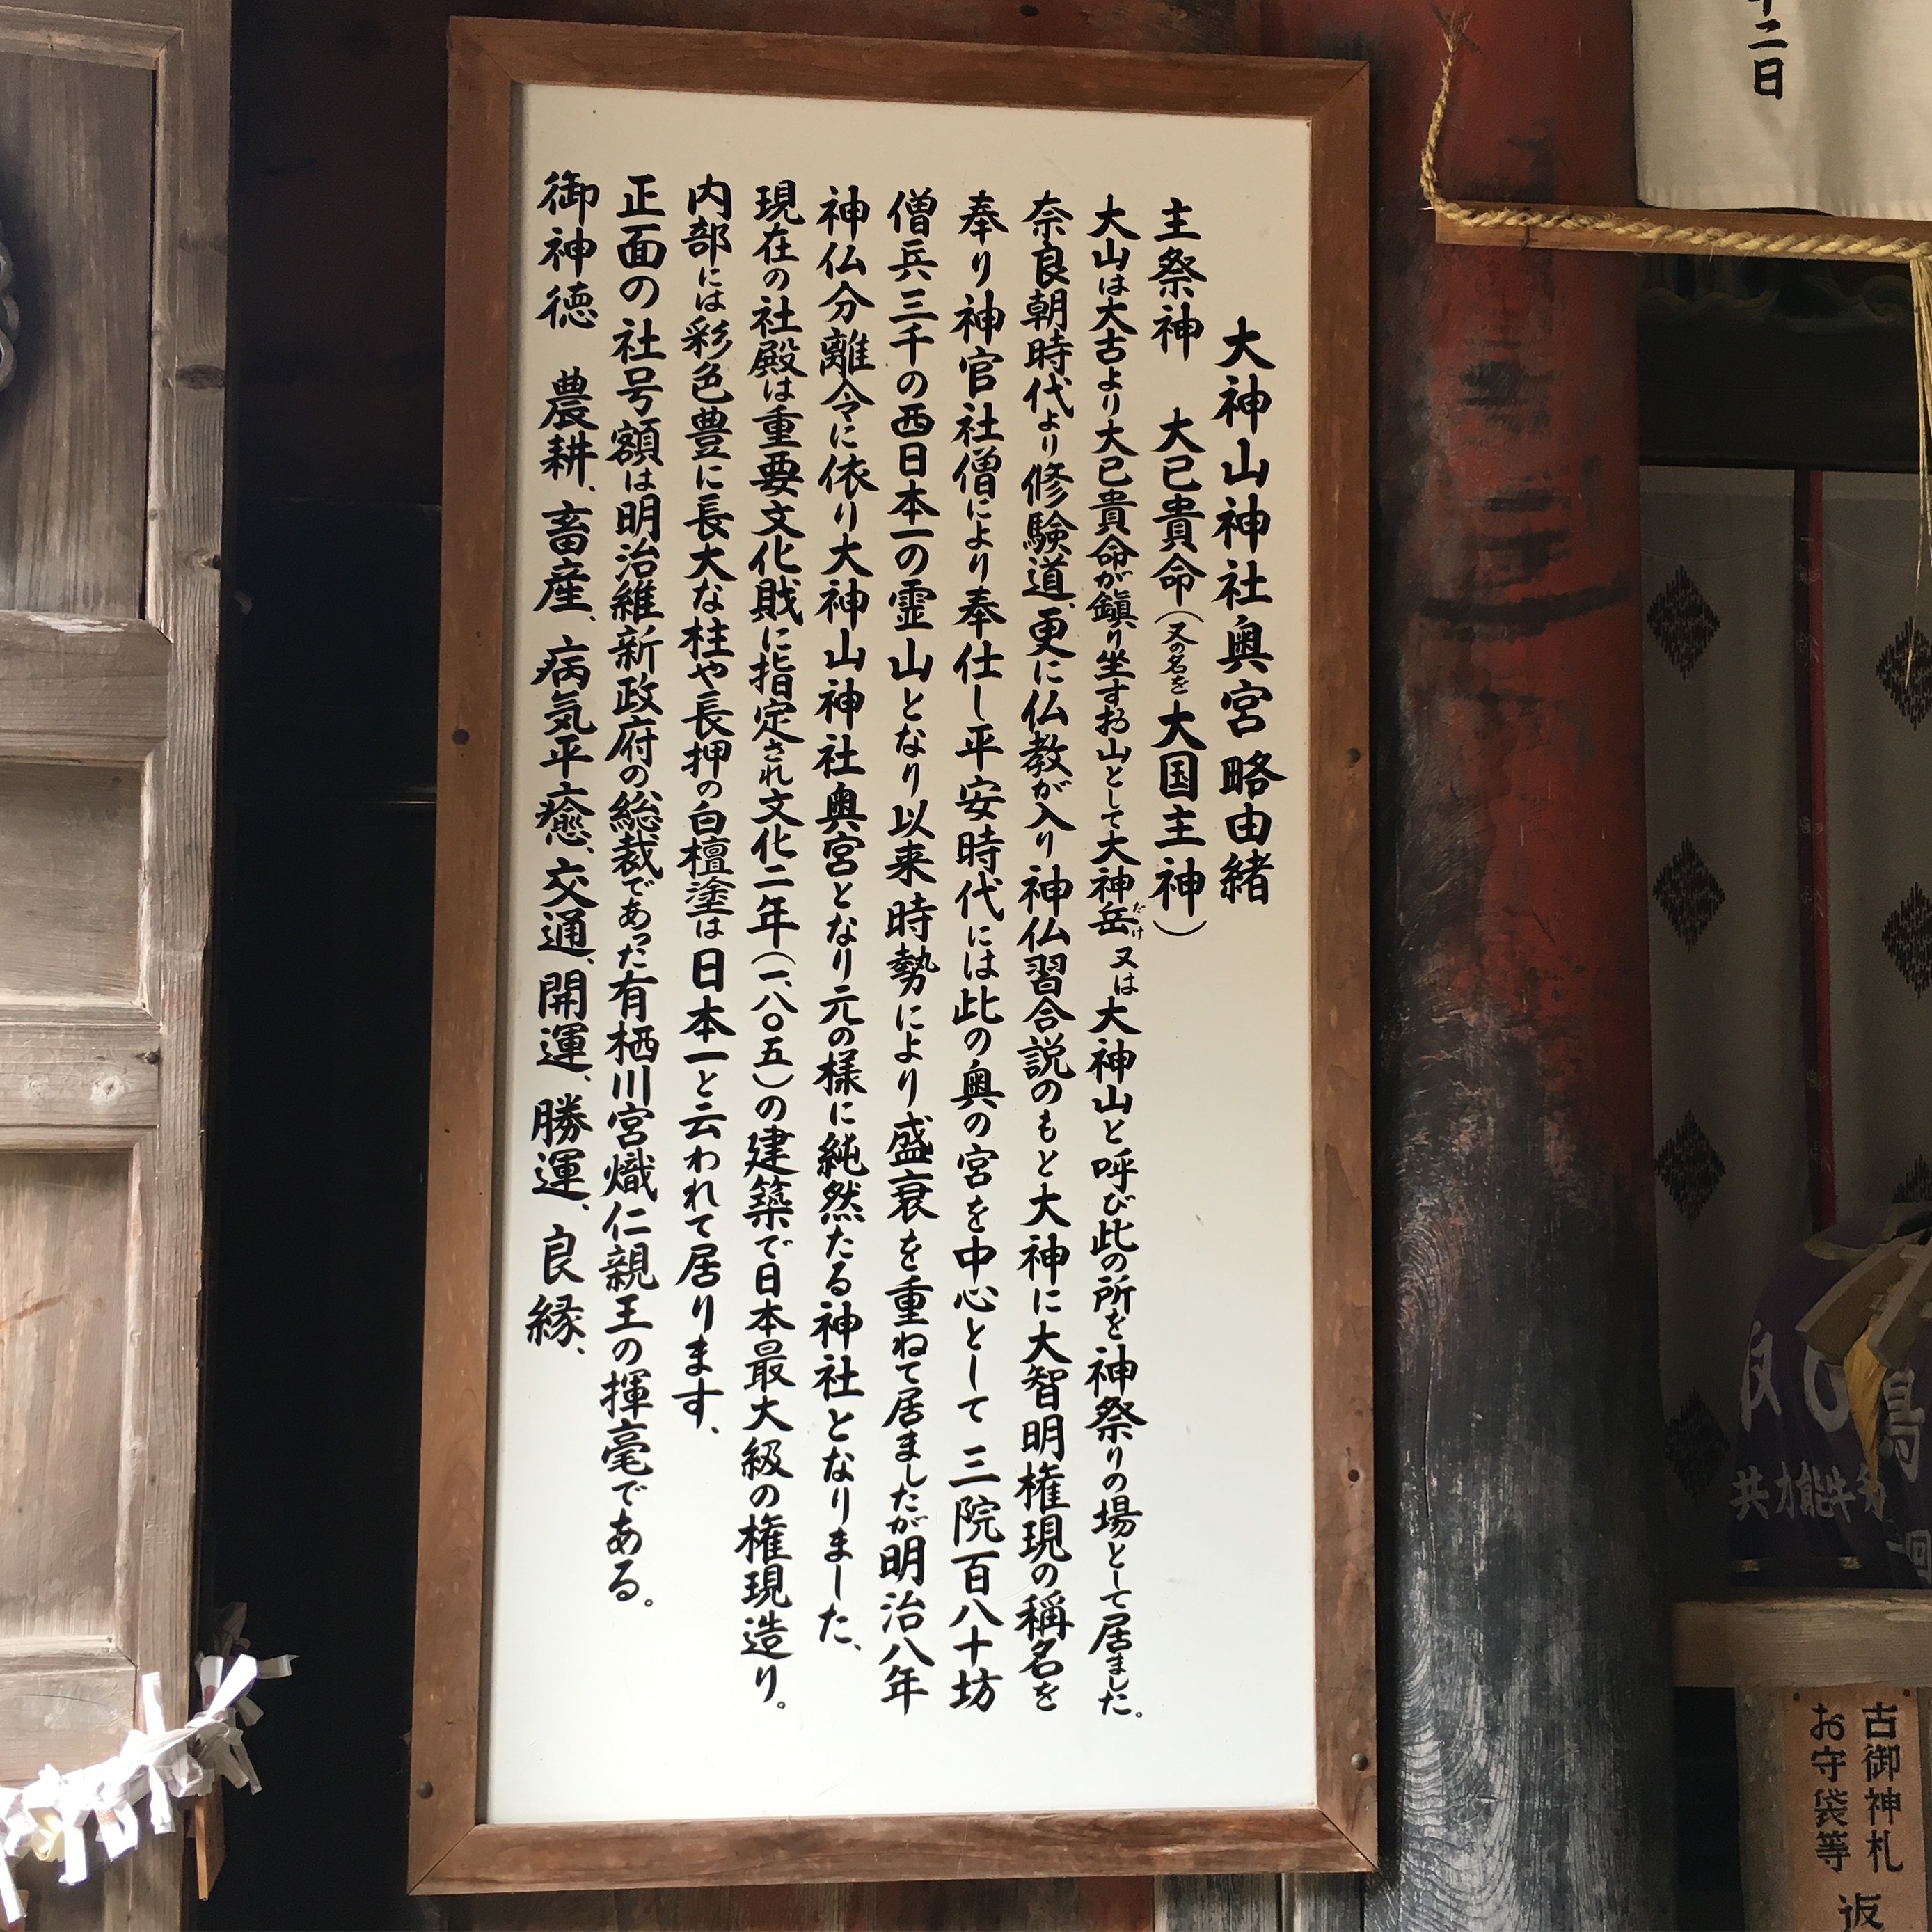 大神山神社奥宮略由緒
主祭神 大已貴命(又の名を大国主神)
大山は大古より大已貴命が鎭り坐すお山として大神岳だけ又は大神山と呼び此の所を神祭りの場として居ました。
奈良朝時代より修験道、更に仏教が入り神仏習合説のもと大神に大智明権現の稱名を
奉り神官社僧により奉仕し平安時代には此の奥の宮を中心として三院百八十坊
僧兵三千の西日本一の霊山となり以来時勢により盛衰を重ねて居ましたが明治八年
神仏分離令に依り大神山神社奥宮となり元の様に純然たる神社となりました、
現在の社殿は重要文化財に指定され文化二年(一、八〇五)の建築で日本最大級の権現造り。
内部には彩色豊に長大な柱や長押の白檀塗は日本一と云われて居ります、
正面の社号額は明治維新政府の総裁であった有栖川宮熾仁親王の揮毫である。
御神徳 農耕、畜産、病気平癒、交通、開運、勝運、良縁、
二日
古御神札
お守袋等
返